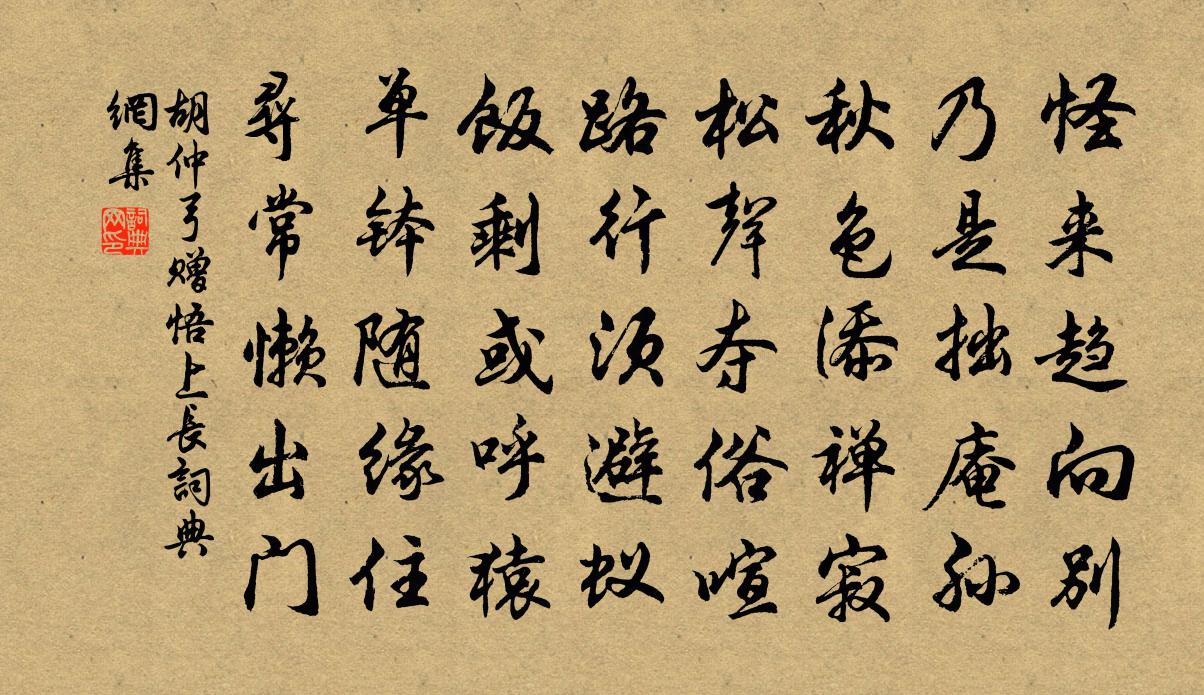 怪来趋向别
乃是拙庵孙
秋色添禅寂
松声夺俗喧
路行须避蚁
饭剩或呼猿
单钵随缘住
寻常懒出门
胡仲弓赠悟上长詞典
網集
詞典
网印